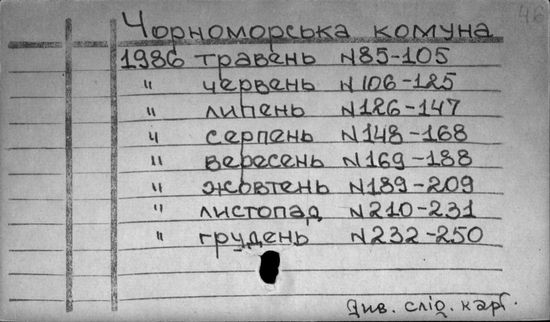 46
Чорноморська комуна
1986 травень N85-105
" червень N106-125
" липень N126-147
" серпень N148-168
" вересень N169-188
" жовтень N189-209
" листопад N210-231
" грудень N232-250
Див. слід. карт.